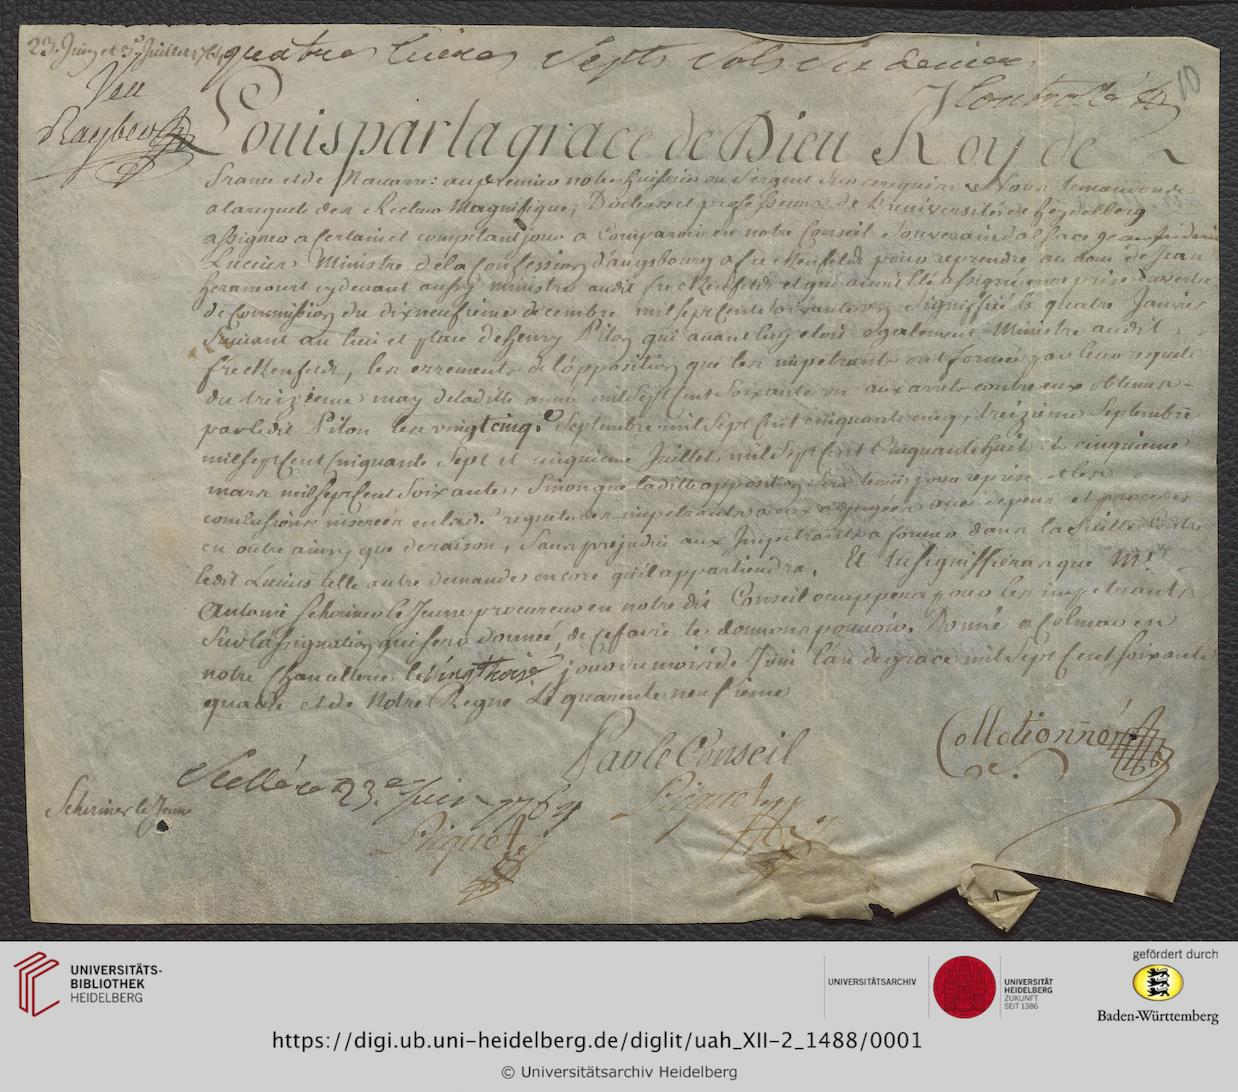 23. Juin et 3e Juillet 1764
quatre livres Sept Sols Six deniers
Veu
Controllé
10
Louis par la grace de Dieu Roy de
France et de Navarre: au premier notre huissier ou Sergent sur ce requis Nous te mandons
a la requete des Recteur Magnifique, Docteurs et professeurs de l'université de heydelberg
assigner a certain et competant jour a comparoir en notre Conseil Souverain d'alsace
Lucius Ministre de la Confession d'augsbourg a freckenfeldt pour reprendre au lieu de Jean
heramourt cy devant aussy ministre audit freckenfeldt et qui avoit été assigné en reprise
de Commission du dix neufieme decembre mil sept cent soixante un signiffié le quatre Janvier
Suivant au lieu et place de henry Piton qui avant luy etoit egalement Ministre audit
freckenfeldt, les erremens de l'opposition que les impetrants ont formée par leur requete
du treizieme may de ladite année mil sept cent soixante un aux arrets contre eux obtenus
par ledit Piton les vingt cinq.e Septembre mil sept cent cinquante cinq, treizieme Septembre
mil sept cent cinquante sept et cinquieme Juillet mil sept cent cinquante huit et cinquieme
mars mil sept cent soixante, Sinon que ladite opposition sera tenue pour reprise et les
conclusions inserées en lad.e requete des impetrants a eux adjugées avec depens et proceder
en outre ainsy que de raison, Sans prejudice aux Impetrants a former dans la Suitte contre
ledit Lucius telle autre demande encore qu'il appartiendra, Et luy signiffieras que Me.
Antoine Scherer le Jeune procureur en notre dit Conseil occuppera pour les impetrants
Sur l'assignation qui sera donnée, de ce faire te donnons pouvoir. Donné a Colmar en
notre Chancellerie le vingt trois.e jour du mois de Juin l'an de grace mil sept cent soixante
quatre et de Notre Regne Le quarente neufieme
Par le Conseil
Collationné
Scellé ce 23.e Juin 1764
Scherer le Jeune
Piquet
Piquet
UNIVERSITÄTS-
BIBLIOTHEK
HEIDELBERG
UNIVERSITÄTSARCHIV
UNIVERSITÄT
HEIDELBERG
ZUKUNFT
SEIT 1386
gefördert durch
Baden-Württemberg
https://digi.ub.uni-heidelberg.de/diglit/uah_XII-2_1488/0001
© Universitätsarchiv Heidelberg